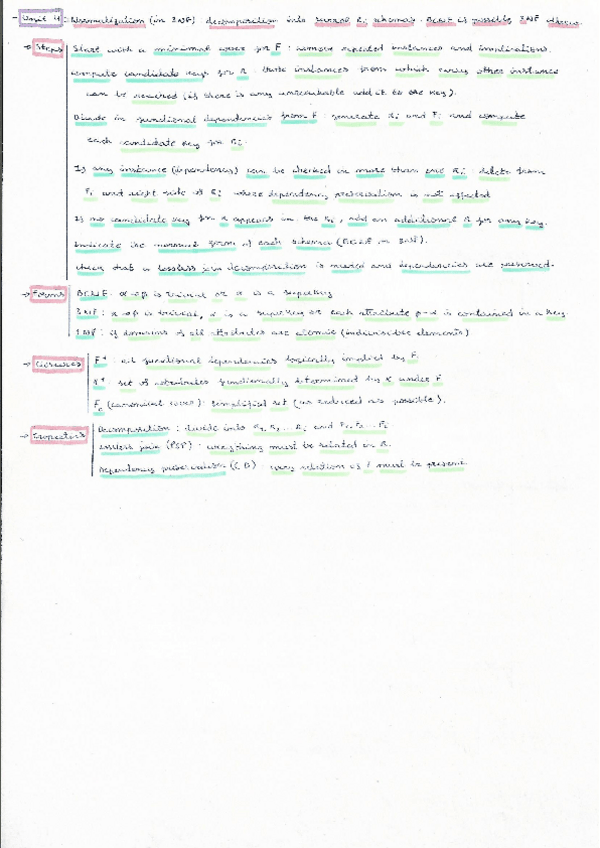 - Unit 4: Normalization (in 3NF) decomposition into several Ri schemas. BCNF if possible, 3NF otherwise.
→ Steps Start with a minimal cover for F: remove repeated instances and implications.
Compute candidate keys for R: those instances from which every other instance
can be reached (if there is any unreachable add it to the key).
Divide in functional dependencies from F: generate Ri and Fi and compute
each candidate key for Ri.
If any instance (dependence) can be checked in more than one Ri: delete from
Fi and right side of Ri where dependency preservation is not affected
If no candidate key for R appears in the Ri, add an additional R for any key.
Indicate the normal form of each schema (BCNF or 3NF).
Check that a lossless join decomposition is created and dependencies are preserved.
→ Forms BCNF: α→β is trivial or α is a superkey
3NF: α→β is trivial, α is a superkey or each attribute β-α is contained in a key
1NF: if domains of all attributes are atomic (indivisible elements)
→ Closures F+: all functional dependencies logically implied by F.
α+: set of attributes functionally determined by α under F
Fc (canonical cover): simplified set (as reduced as possible).
→ Properties Decomposition: divide into R1, R2... Ri and F1, F2... Fi
Lossless join: everything must be related in R.
Dependency preservation: every relation of F must be present